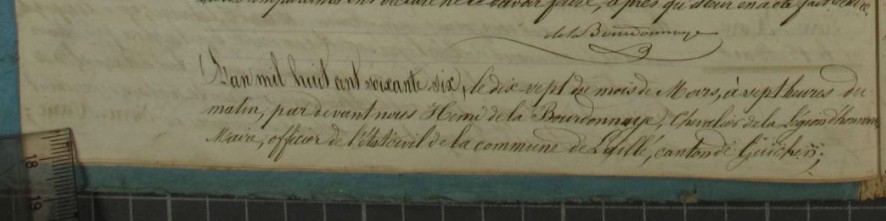 comparants ont déclaré ne le savoir faire, après qu'il leur en a été fait lecture.
de la Bourdonnaye
L'an mil huit cent soixante six, le dix-sept du mois de Mars, à sept heures du
matin, par devant nous Henri de la Bourdonnaye, Chevalier de la Légion d'honneur,
Maire, officier de l'état civil de la commune de Laillé, canton de Guichen;
18
19